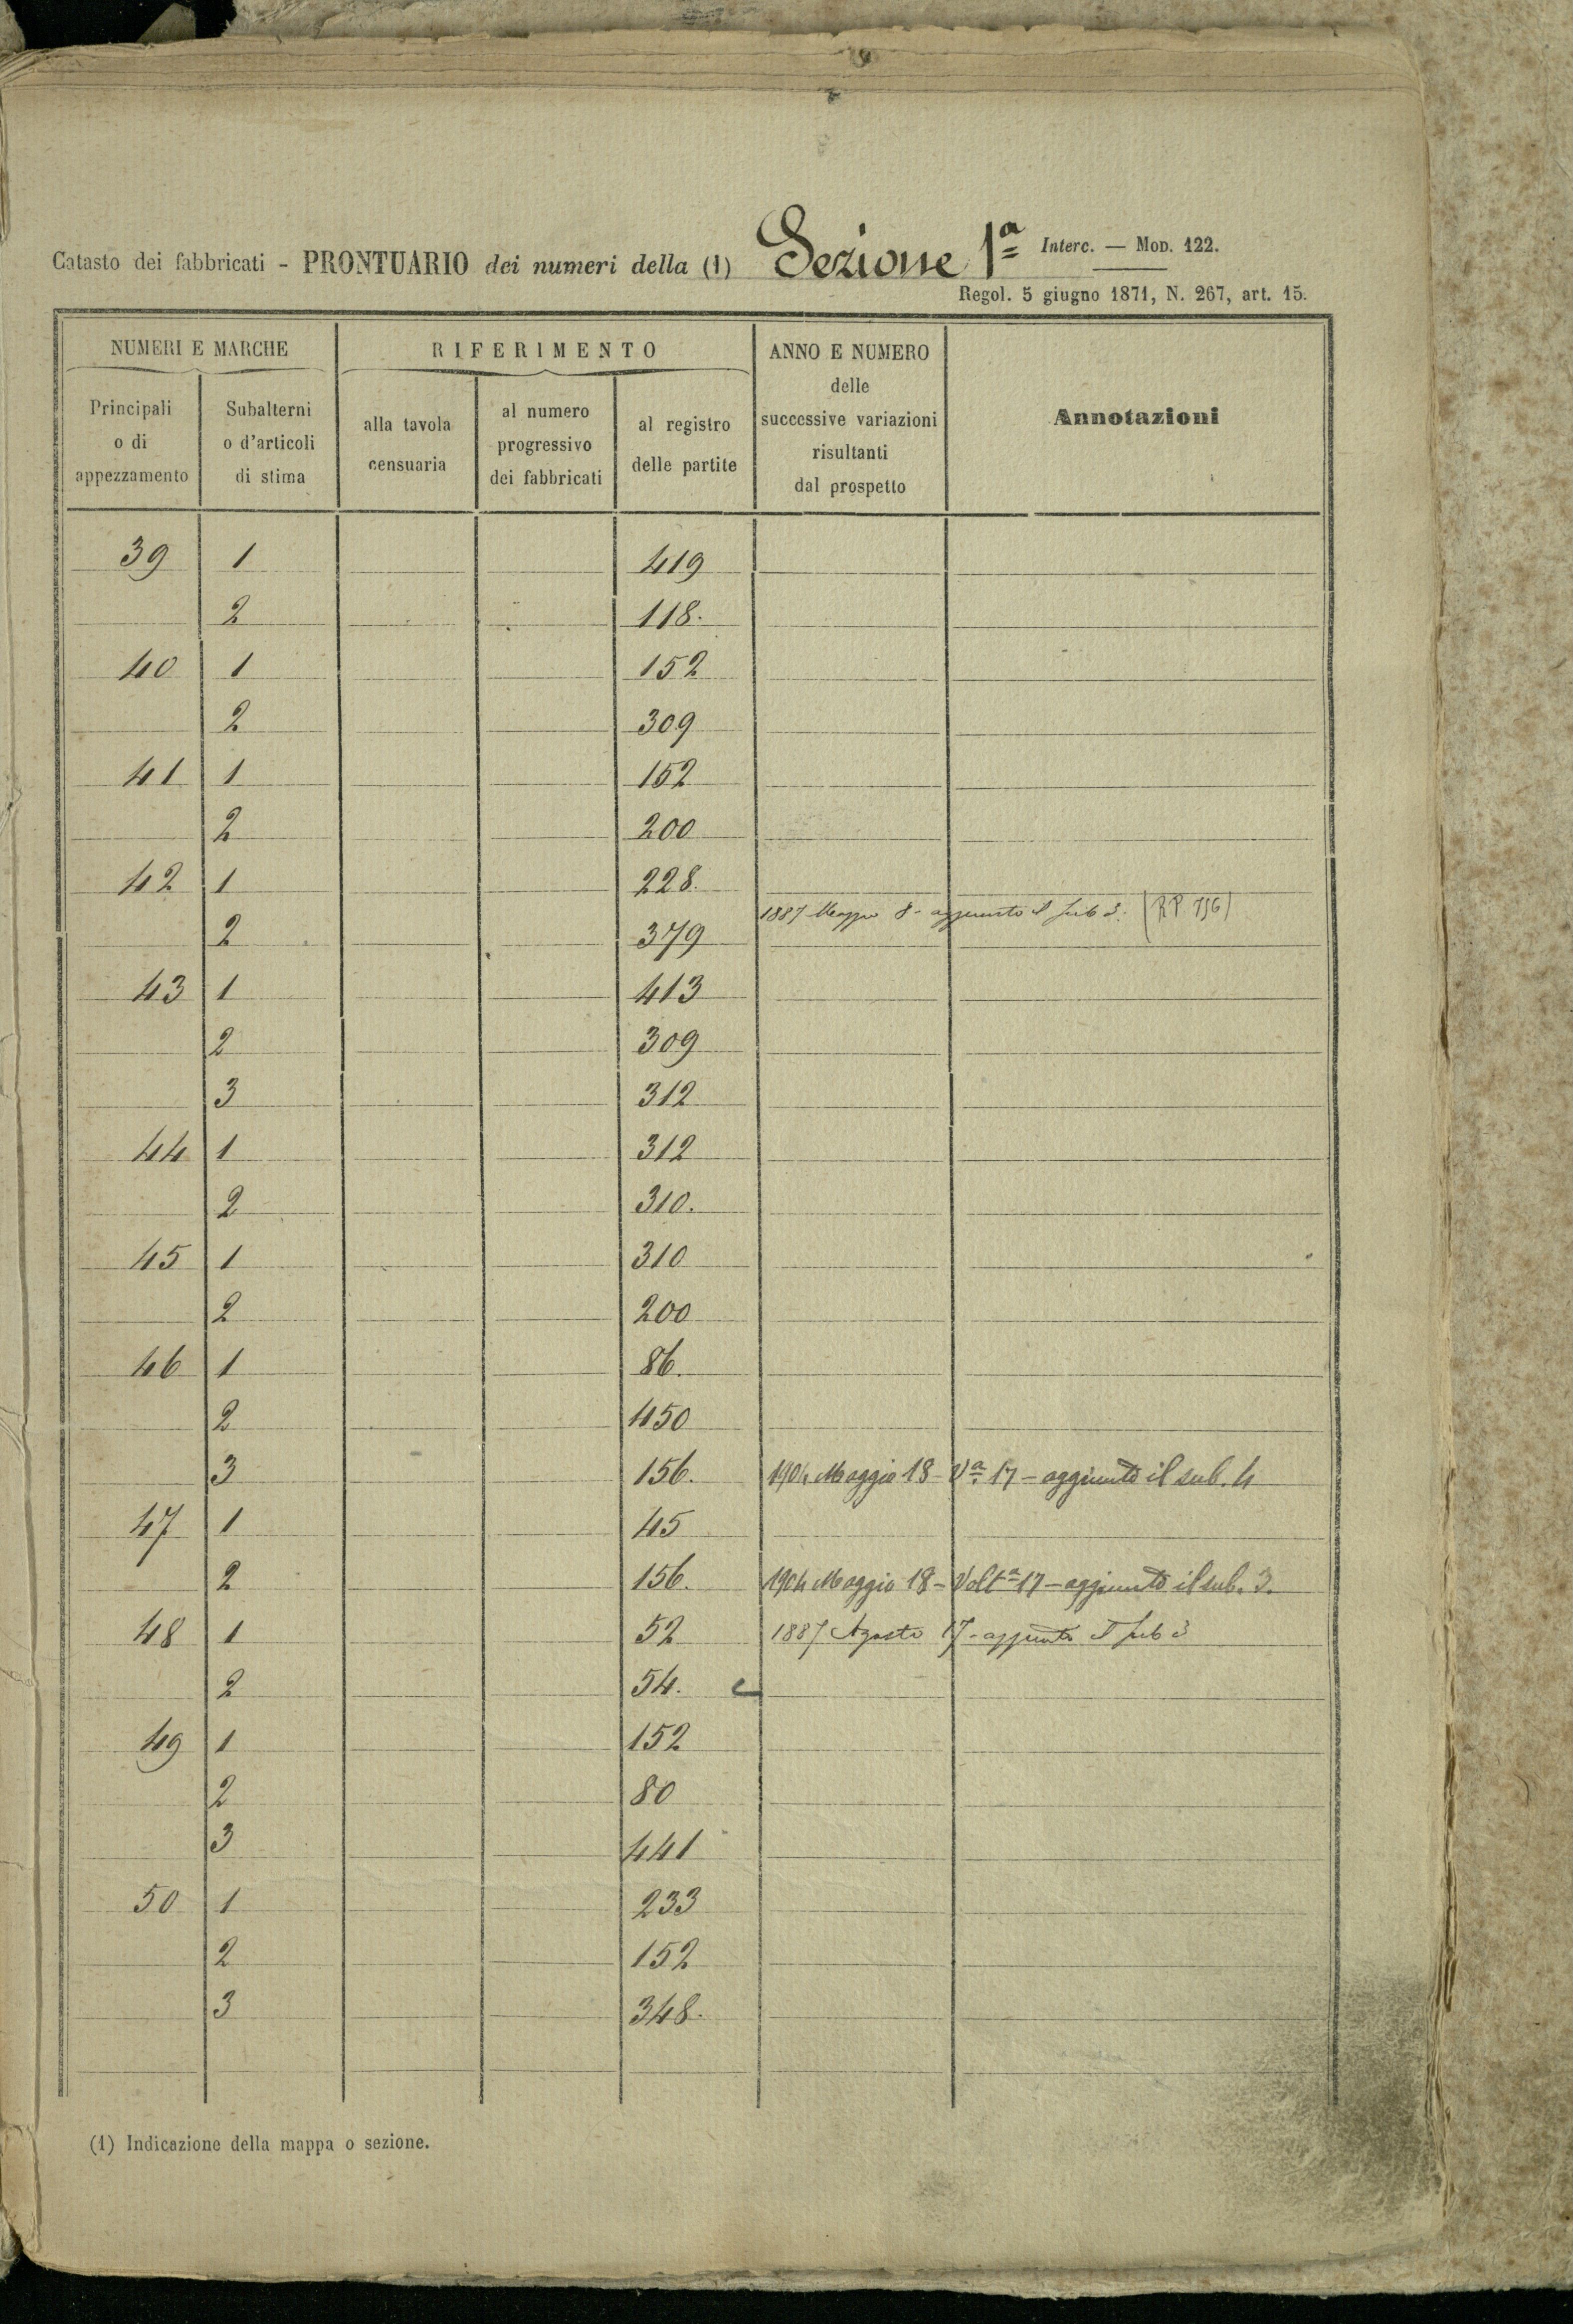 Catasto dei fabbricati - PRONTUARIO dei numeri della (1) Sezione 1ª Interc. — Mod. 122.
Regol. 5 giugno 1871, N. 267, art. 15.
NUMERI E MARCHE RIFERIMENTO ANNO E NUMERO delle successive variazioni risultanti dal prospetto Annotazioni
Principali o di appezzamento Subalterni o d'articoli di stima alla tavola censuaria al numero progressivo dei fabbricati al registro delle partite
39 1 419
2 118.
40 1 152
2 309
41 1 152
2 200
42 1 228.
2 379 1887 Maggio 8 - aggiunto il sub 3. (RP 756)
43 1 413
2 309
3 312
44 1 312
2 310.
45 1 310
2 200
46 1 86.
2 450
3 156. 1904 Maggio 18 - Vª 17 - aggiunto il sub. 4
47 1 45
2 156. 1904 Maggio 18 - Voltª 17 - aggiunto il sub. 3.
48 1 52 1887 Agosto 17 - aggiunto il sub 3
2 54.
49 1 152
2 80
3 441
50 1 233
2 152
3 348.
(1) Indicazione della mappa o sezione.